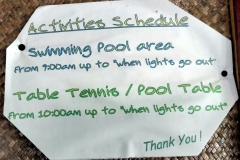 Activities Schedule
Swimming Pool area
From 9:00am up to "when lights go out"
Table Tennis / Pool Table
From 10:00am up to "when lights go out"
Thank You!